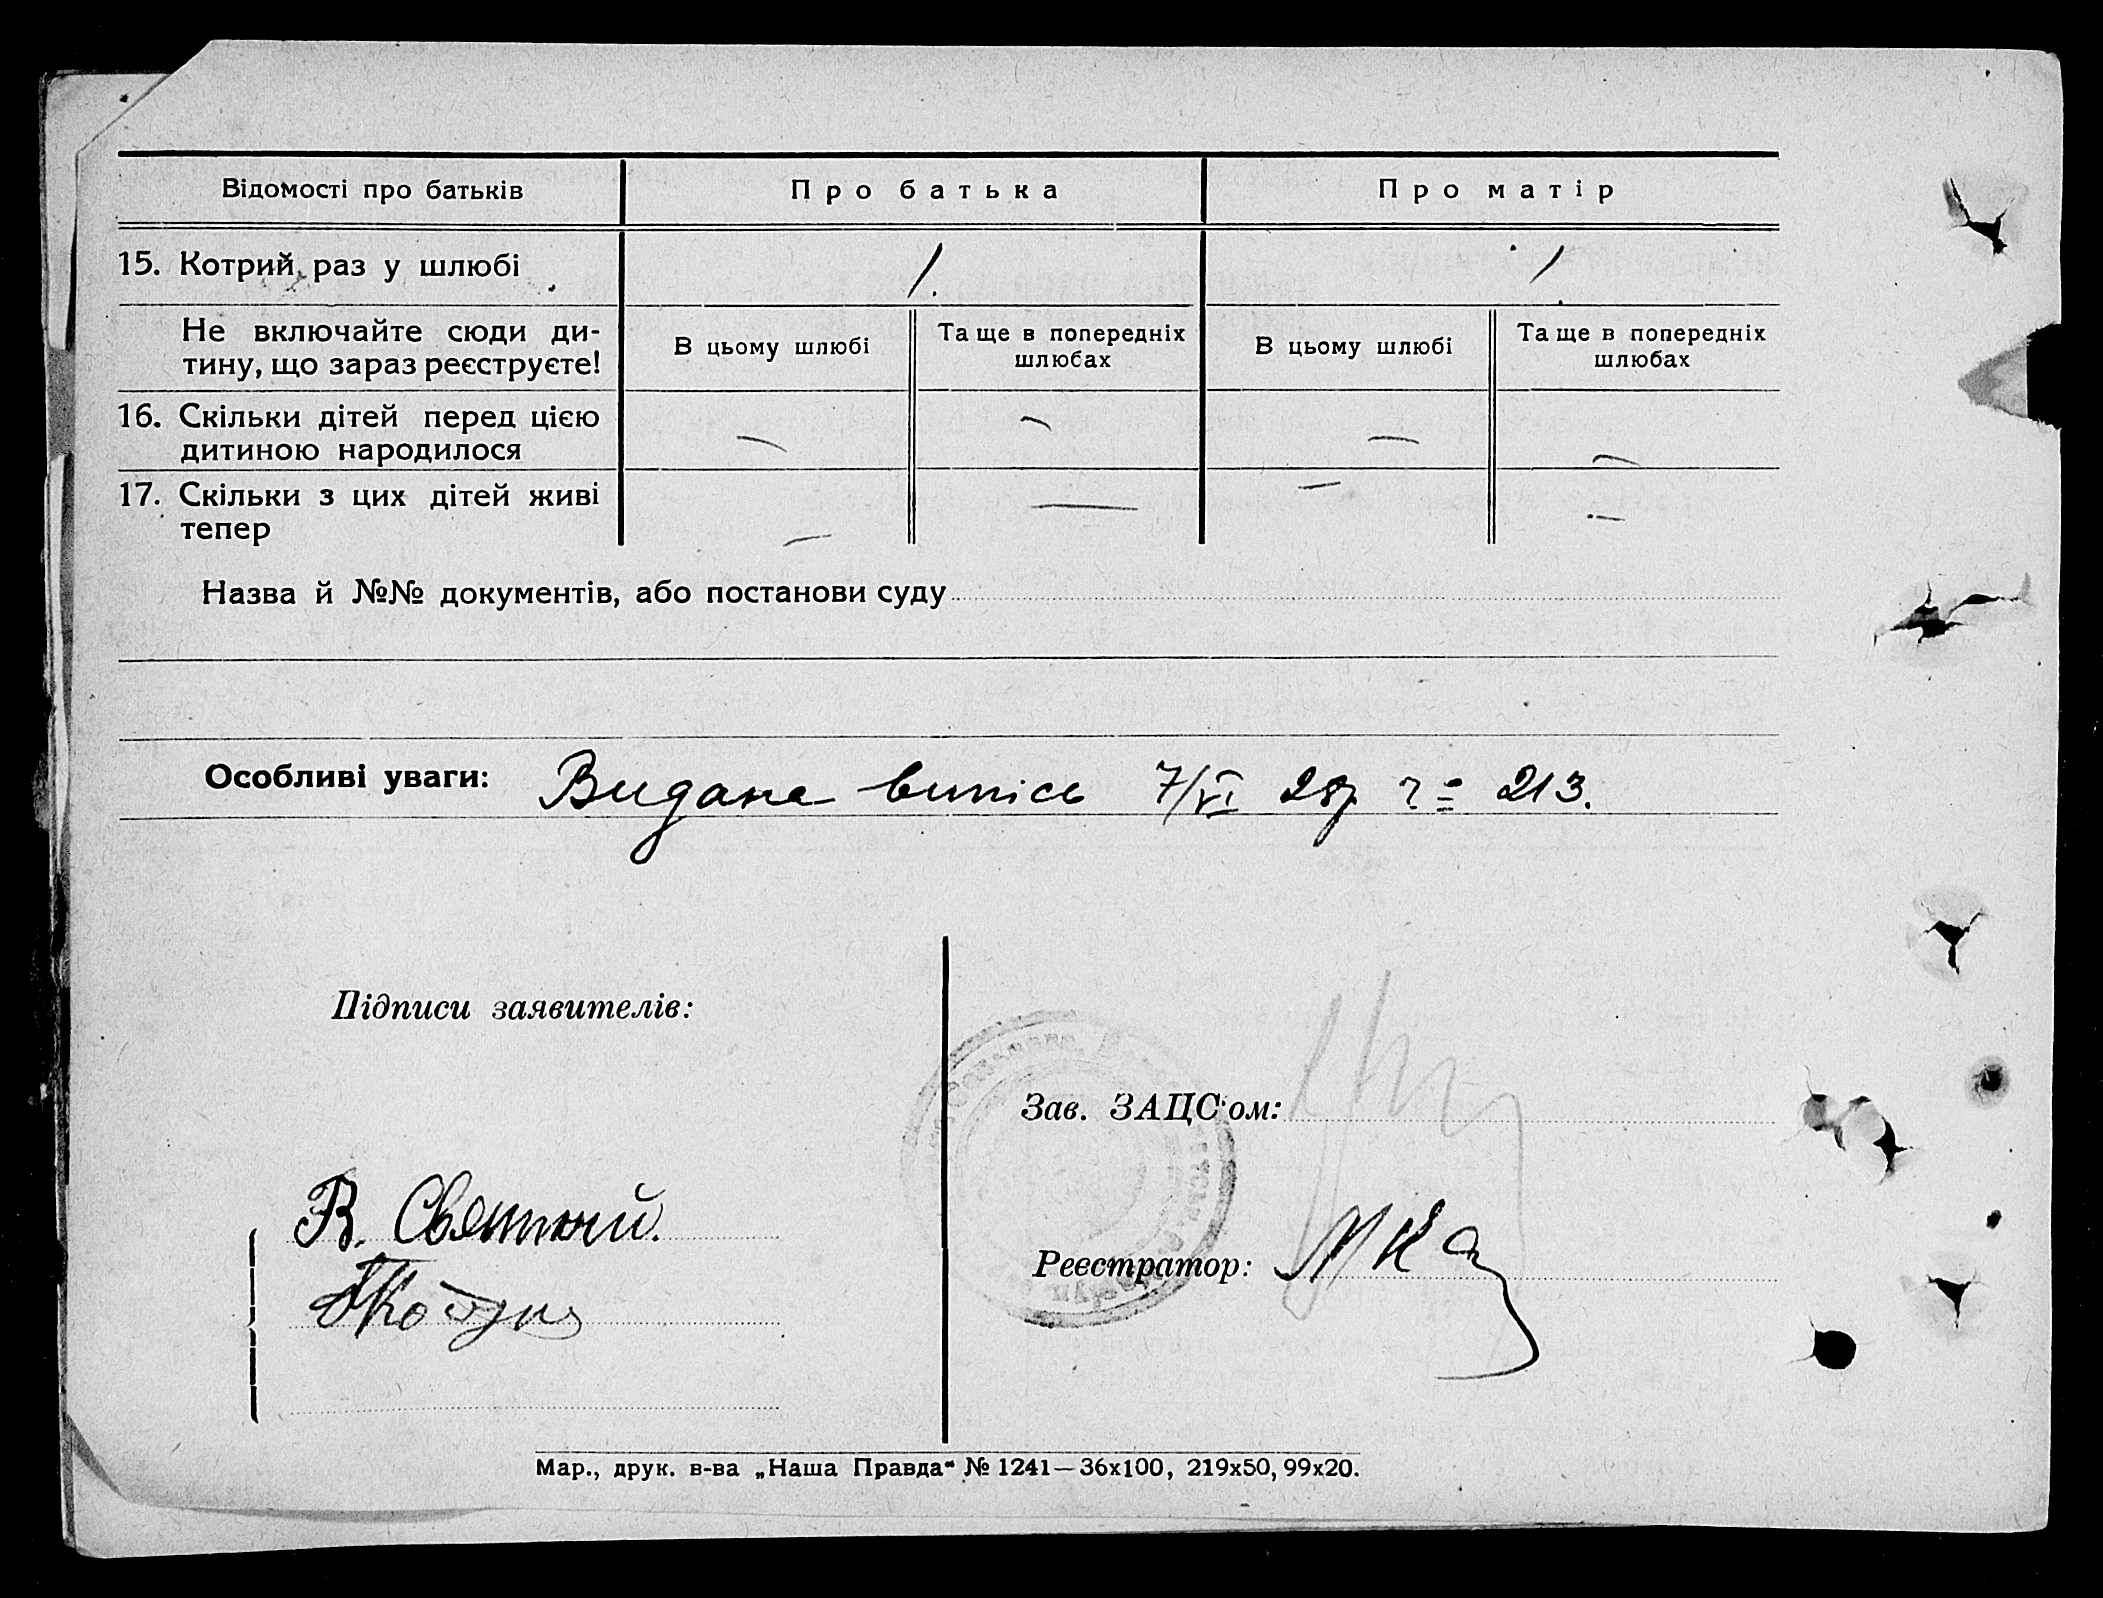 Відомості про батьків
Про батька
Про матір
15. Котрий раз у шлюбі
1.
1
Не включайте сюди ди-
тину, що зараз реєструєте!
В цьому шлюбі
Та ще в попередніх
шлюбах
В цьому шлюбі
Та ще в попередніх
шлюбах
16. Скільки дітей перед цією
дитиною народилося
—
—
—
—
17. Скільки з цих дітей живі
тепер
—
—
—
—
Назва й №№ документів, або постанови суду
Особливі уваги: Видана випись 7/VI 28р. 213.
Підписи заявителів:
Зав. ЗАЦС'ом:
В. Святный.
Реєстратор:
Мар., друк. в-ва „Наша Правда“ № 1241—36х100, 219х50, 99х20.